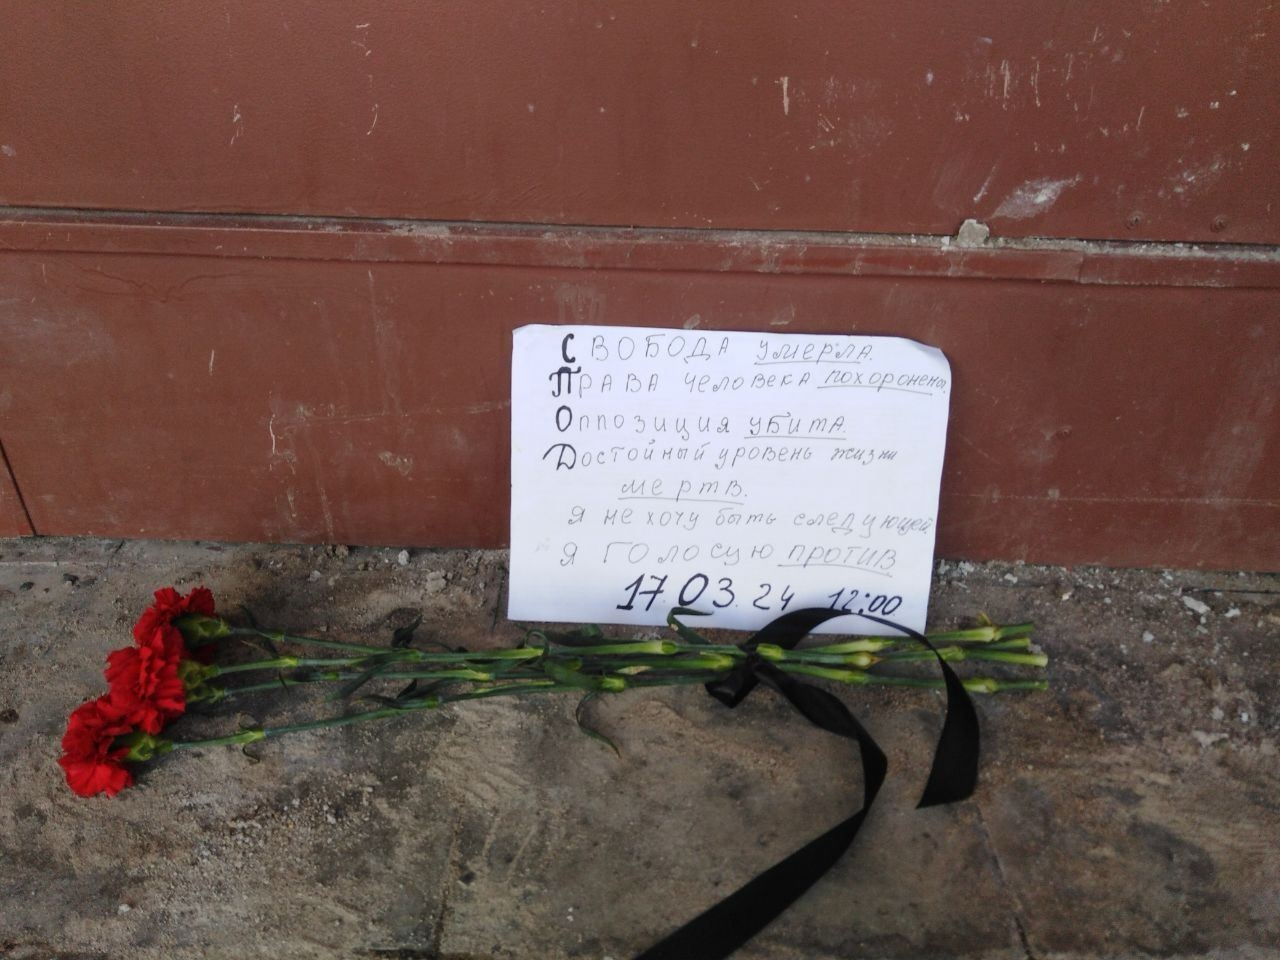 СВОБОДА УМЕРЛА.
ПРАВА ЧЕЛОВЕКА ПОХОРОНЕНЫ.
ОППОЗИЦИЯ УБИТА.
Достойный уровень жизни
мертв.
Я не хочу быть следующей.
Я ГОЛОСУЮ ПРОТИВ
17.03.24 12:00